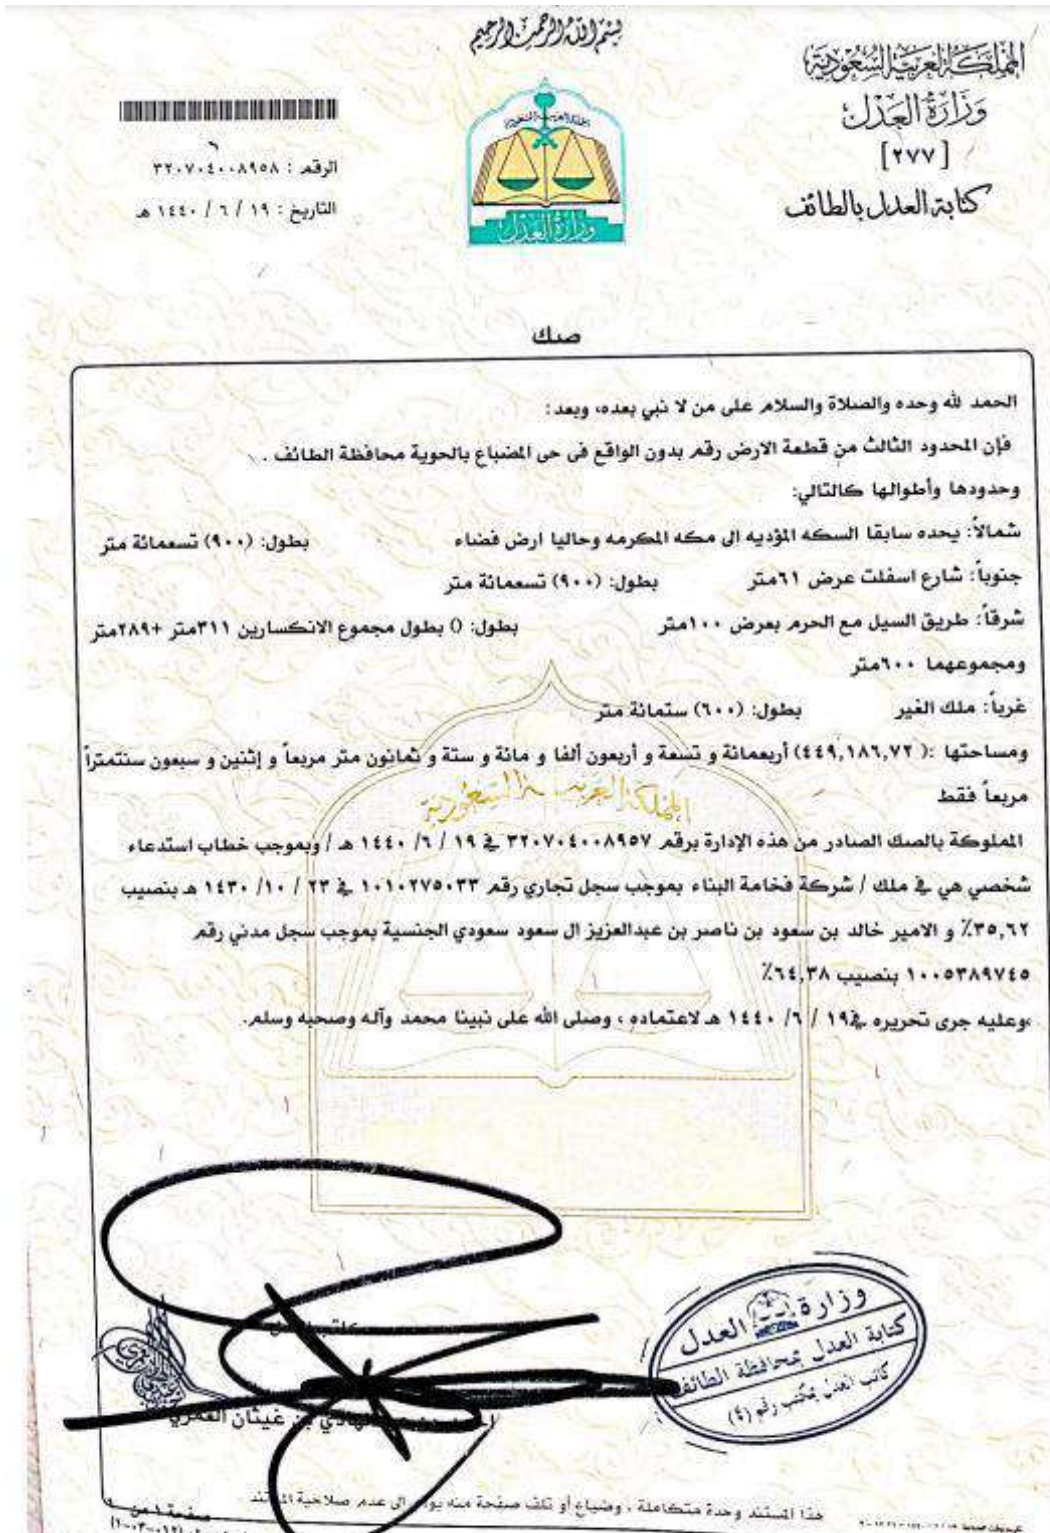 بسم الله الرحمن الرحيم
المملكة العربية السعودية
وزارة العدل
[٢٧٧]
كتابة العدل بالطائف
الرقم : ٣٢٠٧٠٤٠٠٨٩٥٨
التاريخ : ١٩ / ٦ / ١٤٤٠ هـ
وزارة العدل
صك
الحمد لله وحده والصلاة والسلام على من لا نبي بعده، وبعد:
فإن المحدود الثالث من قطعة الارض رقم بدون الواقع في حى المضباع بالحوية محافظة الطائف .
وحدودها وأطوالها كالتالي:
شمالاً: يحده سابقا السكه المؤديه الى مكه المكرمه وحاليا ارض فضاء بطول: (٩٠٠) تسعمائة متر
جنوباً: شارع اسفلت عرض ٦١متر بطول: (٩٠٠) تسعمائة متر
شرقاً: طريق السيل مع الحرم بعرض ١٠٠متر بطول: () بطول مجموع الانكسارين ٣١١متر +٢٨٩متر
ومجموعهما ٦٠٠متر
غرباً: ملك الغير بطول: (٦٠٠) ستمائة متر
ومساحتها :( ٤٤٩,١٨٦,٧٢) أربعمائة و تسعة و أربعون ألفا و مائة و ستة و ثمانون متر مربعاً و إثنين و سبعون سنتمتراً
مربعاً فقط
المملكة العربية السعودية
المملوكة بالصك الصادر من هذه الإدارة برقم ٣٢٠٧٠٤٠٠٨٩٥٧ في ١٩ / ٦ / ١٤٤٠ هـ / وبموجب خطاب استدعاء
شخصي هي في ملك / شركة فخامة البناء بموجب سجل تجاري رقم ١٠١٠٢٧٥٠٣٣ في ٢٣ / ١٠ / ١٤٣٠ هـ بنصيب
٣٥,٦٢٪ و الامير خالد بن سعود بن ناصر بن عبدالعزيز ال سعود سعودي الجنسية بموجب سجل مدني رقم
١٠٠٥٣٨٩٧٤٥ بنصيب ٦٤,٣٨٪
،وعليه جرى تحريره في١٩ / ٦ / ١٤٤٠ هـ لاعتماده ، وصلى الله على نبينا محمد وآله وصحبه وسلم.
وزارة العدل
كتابة العدل بمحافظة الطائف
كاتب العدل بمكتب رقم (٤)
بن غيثان العمري
هذا المستند وحدة متكاملة ، وضياع أو تلف صفحة منه يؤدي الى عدم صلاحية المستند
صفحة ١ من